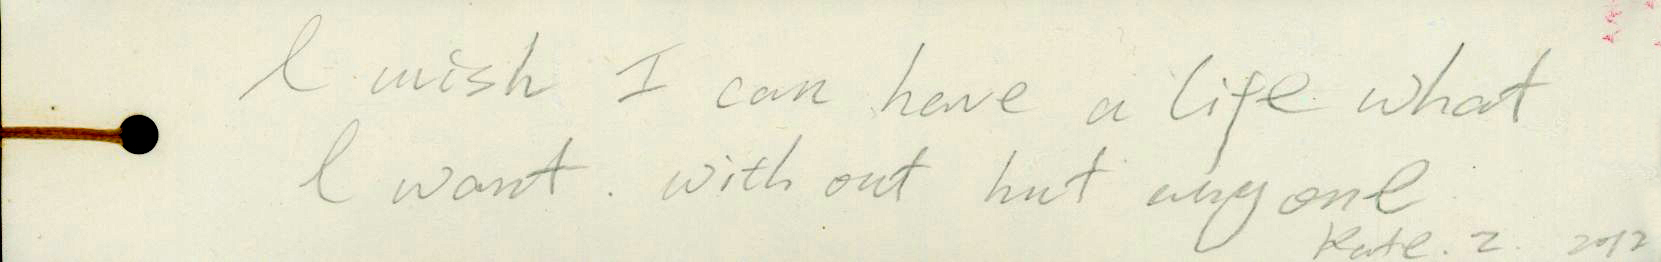 I wish I can have a life what
I want. with out hut anyone
Kate. Z. 2012